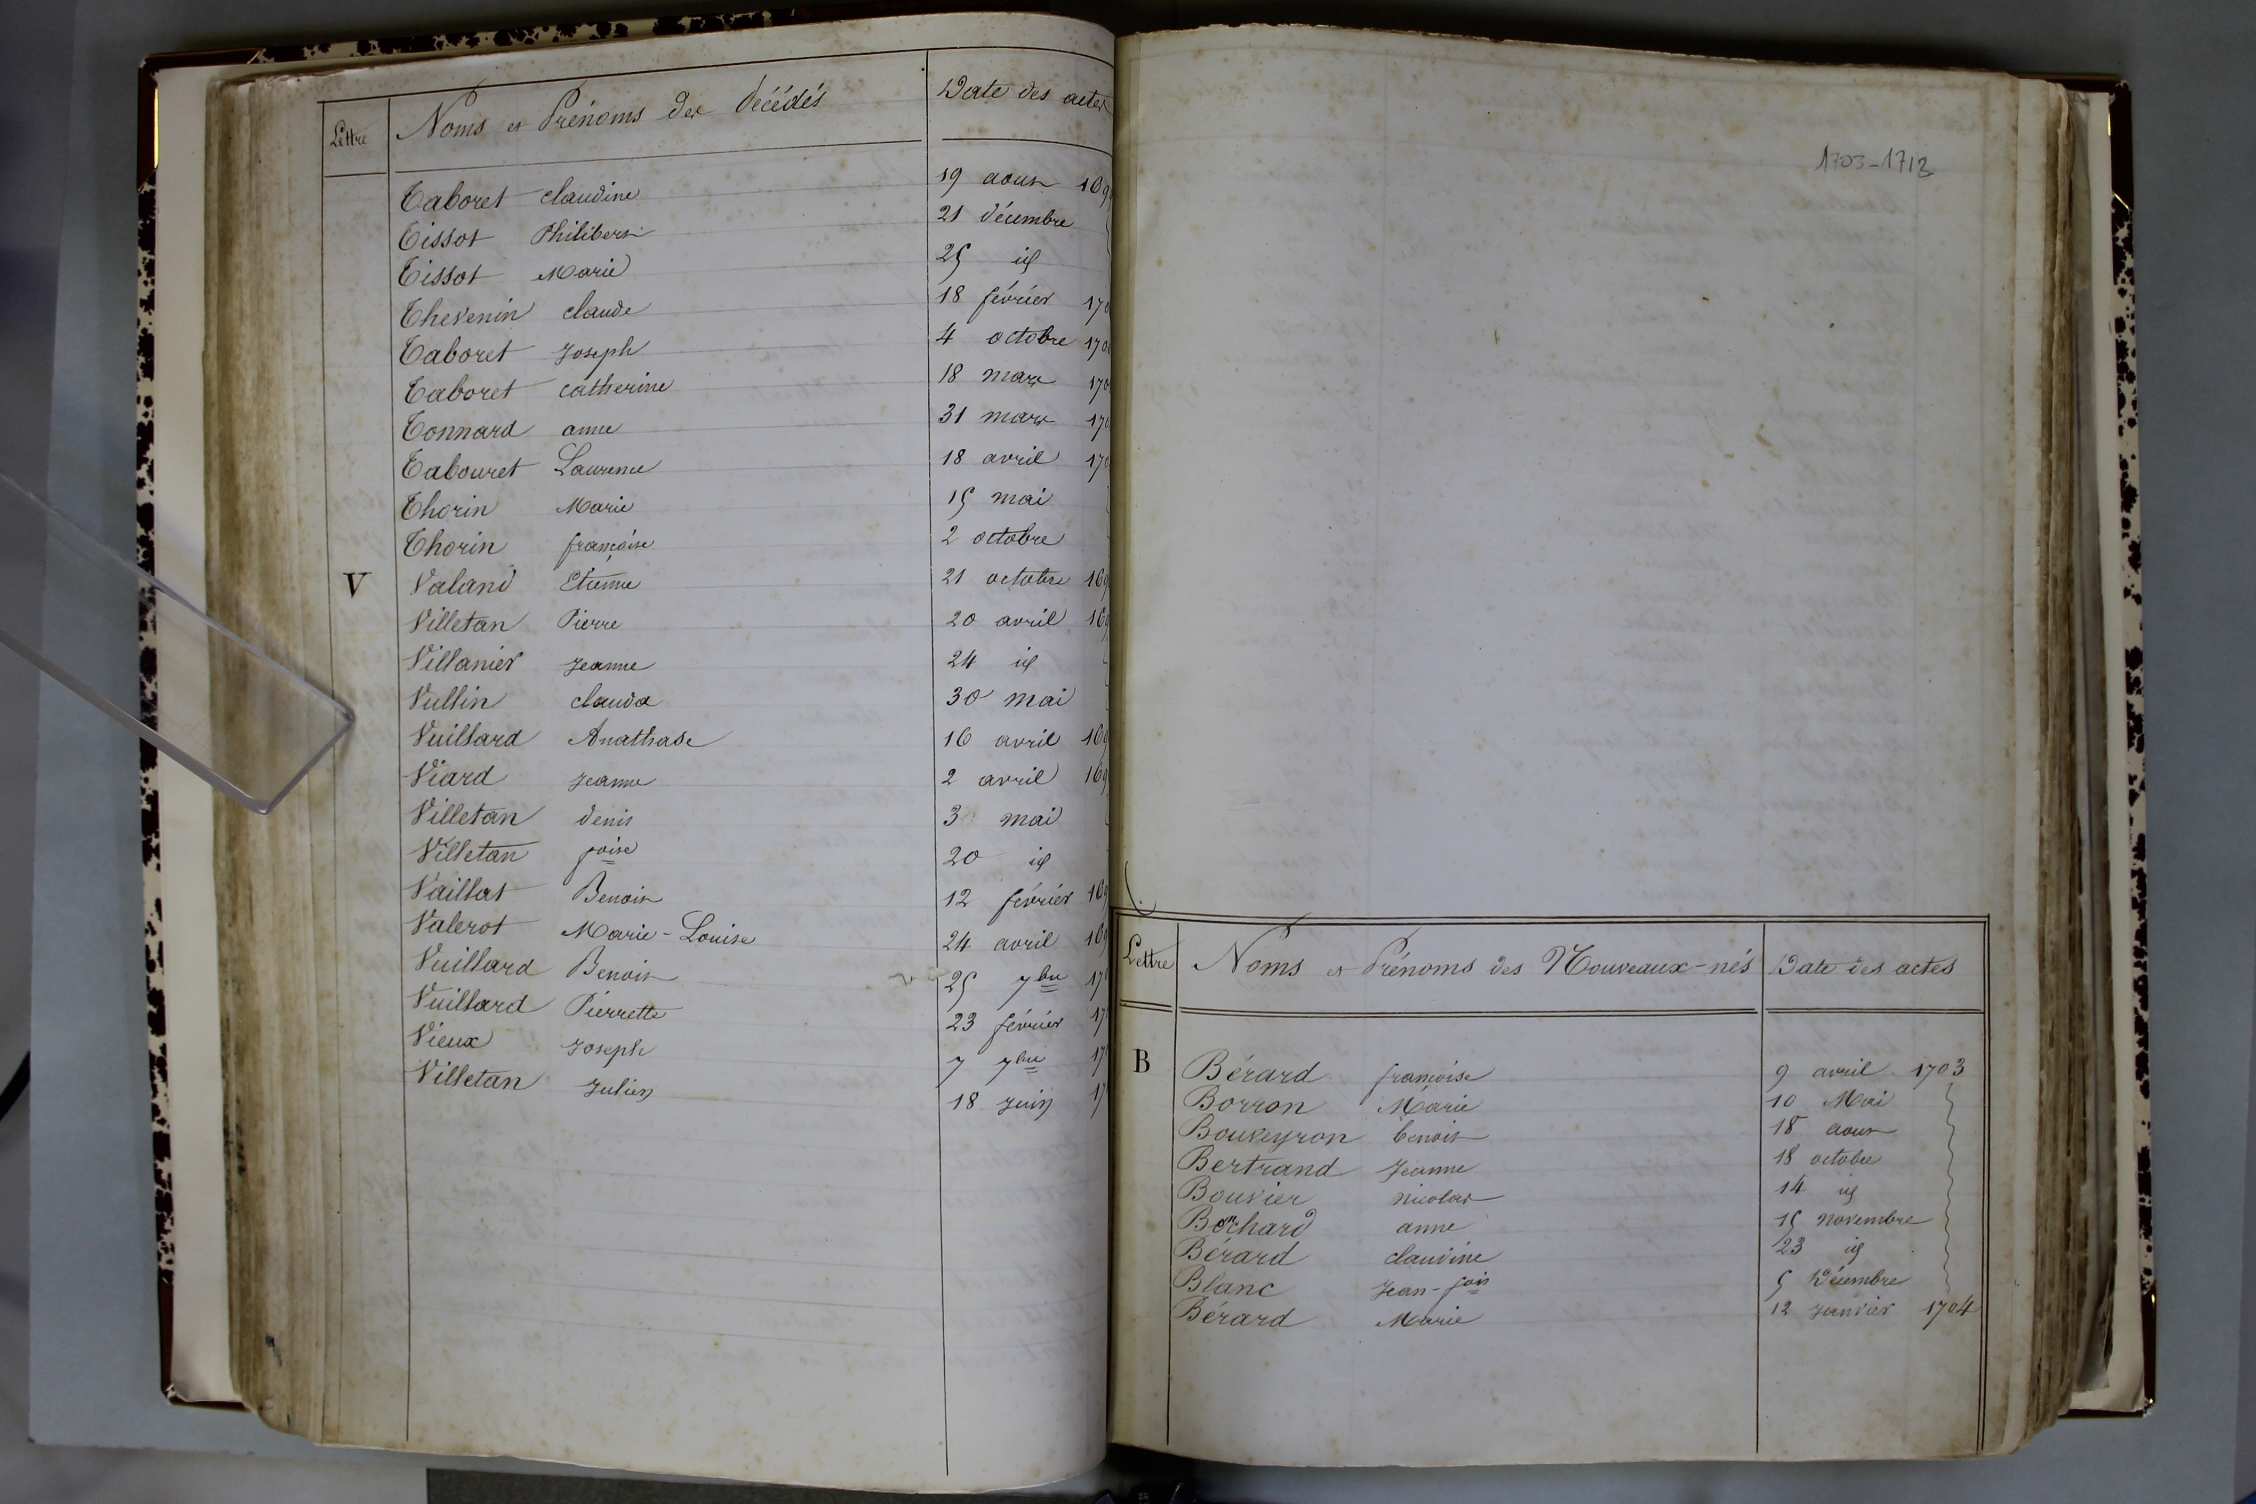 Lettre Noms et Prénoms des décédés Date des actes
Taboret claudine 19 aoust 169
Tissot Philibert 21 décembre
Tissot Marie 25 id
Thevenin claude 18 février 170
Taboret Joseph 4 octobre 170
Taboret catherine 18 mars 170
Tonnard anne 31 mars 170
Tabouret Laurence 18 avril 170
Thorin Marie 15 mai
Thorin françoise 2 octobre
V Valand Etienne 21 octobre 169
Villetan Pierre 20 avril 169
Villanier Jeanne 24 id
Vullin clauda 30 mai
Vuillard Anathase 16 avril 169
Viard Jeanne 2 avril 169
Villetan denis 3 mai
Villetan foise 20 id
Vaillat Benoit 12 février 169
Valerot Marie-Louise 24 avril 169
Vuillard Benoit 25 7bre 17
Vuillard Pierrette 23 février 17
Vieux Joseph 7 7bre 17
Villetan Julien 18 Juin 17
1703-1712
Lettre Noms et Prénoms des Nouveaux-nés Date des actes
B Bérard françoise 9 avril 1703
Borron Marie 10 Mai
Bouveyron benoit 18 aout
Bertrand Jeanne 18 octobre
Bouvier nicolas 14 id
Bochard anne 15 novembre
Bérard claudine 23 id
Blanc Jean-fois 5 Décembre
Bérard Marie 12 Janvier 1704